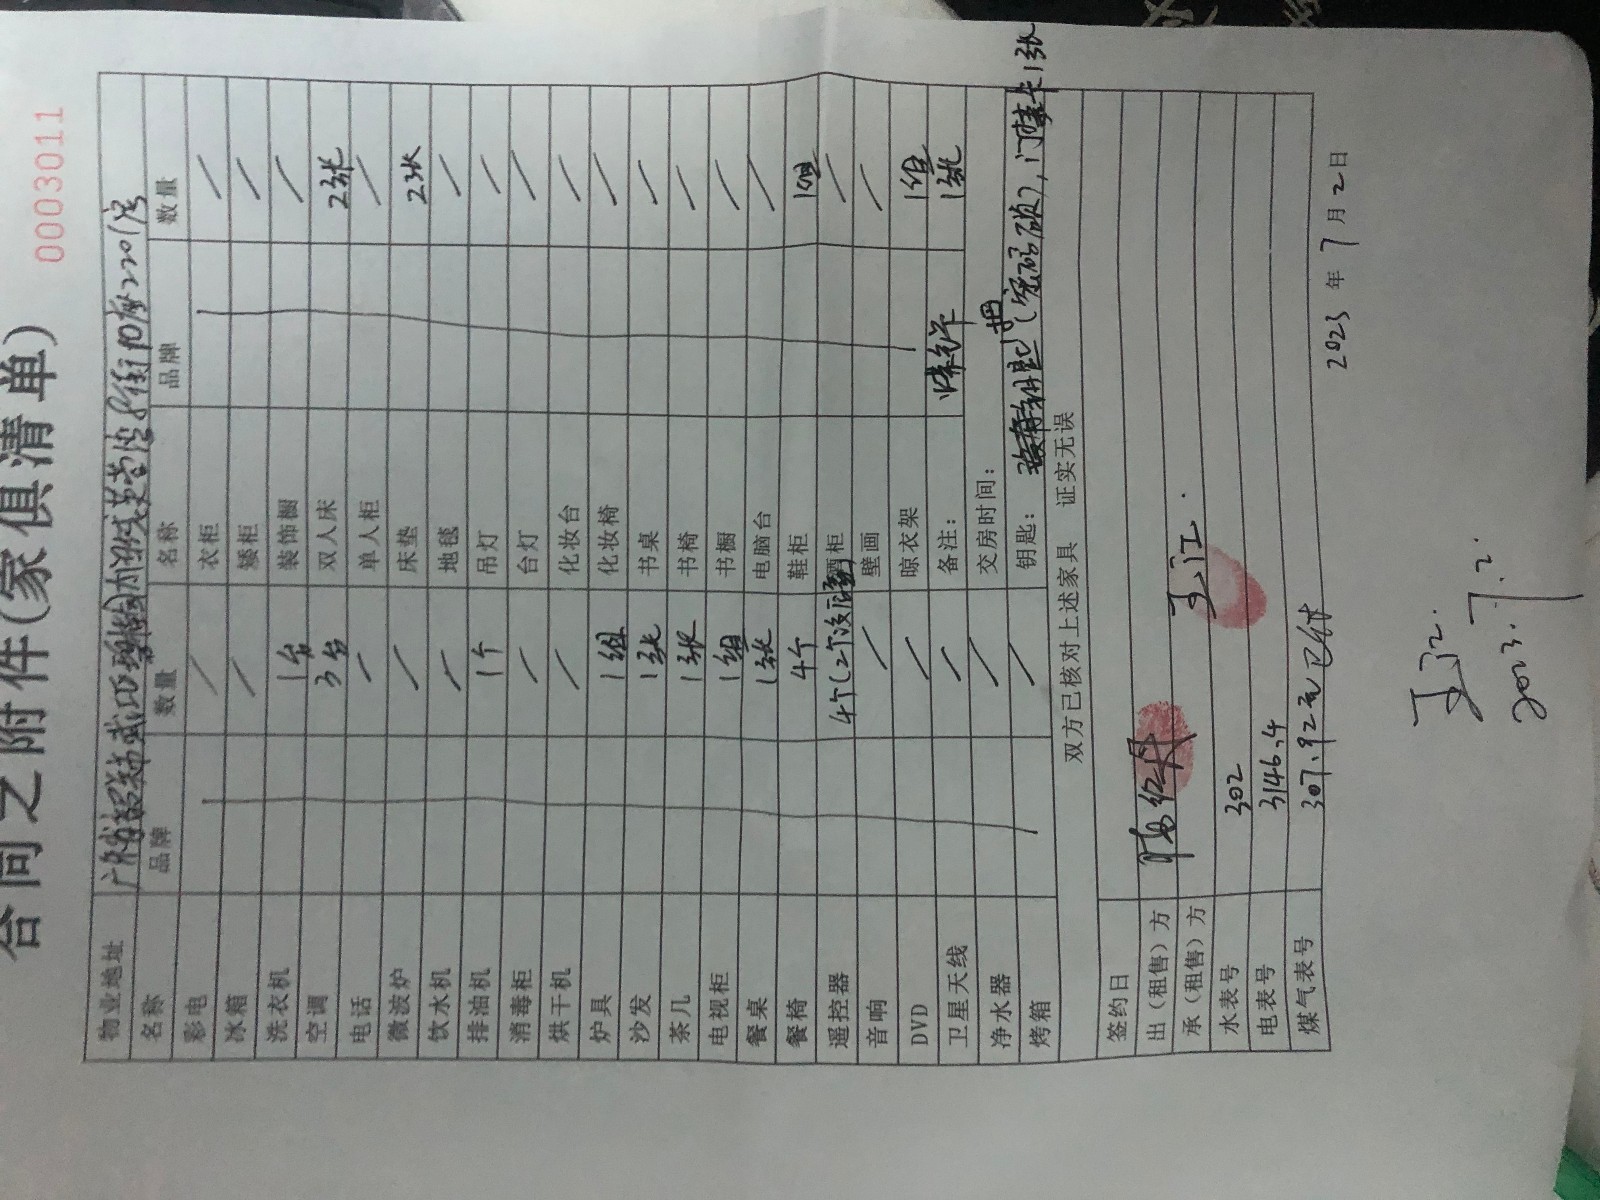 合同之附件(家俱清单)
0003011
物业地址 广东省韶关市武江区 8街10座2201房
名称 品牌 数量 名称 品牌 数量
彩电 / 衣柜 /
冰箱 / 矮柜 /
洗衣机 1台 装饰橱 /
空调 3台 双人床 2张
电话 / 单人柜 /
微波炉 / 床垫 2张
饮水机 / 地毯 /
排油机 1个 吊灯 /
消毒柜 / 台灯 /
烘干机 / 化妆台 /
炉具 1组 化妆椅 /
沙发 1张 书桌 /
茶几 1张 书椅 /
电视柜 1组 书橱 /
餐桌 1张 电脑台 /
餐椅 4个 鞋柜 1组
遥控器 4个(2个没 酒柜 /
音响 / 壁画 /
DVD / 晾衣架 1组
卫星天线 / 备注: 1张
净水器 / 交房时间:
烤箱 / 钥匙: (密码锁),门禁卡1张
双方已核对上述家具 证实无误
签约日
出(租售)方
承(租售)方 王江.
水表号 302
电表号 3146.4
煤气表号 307.92元已付
2023年7月2日
王江.
2023.7.2.